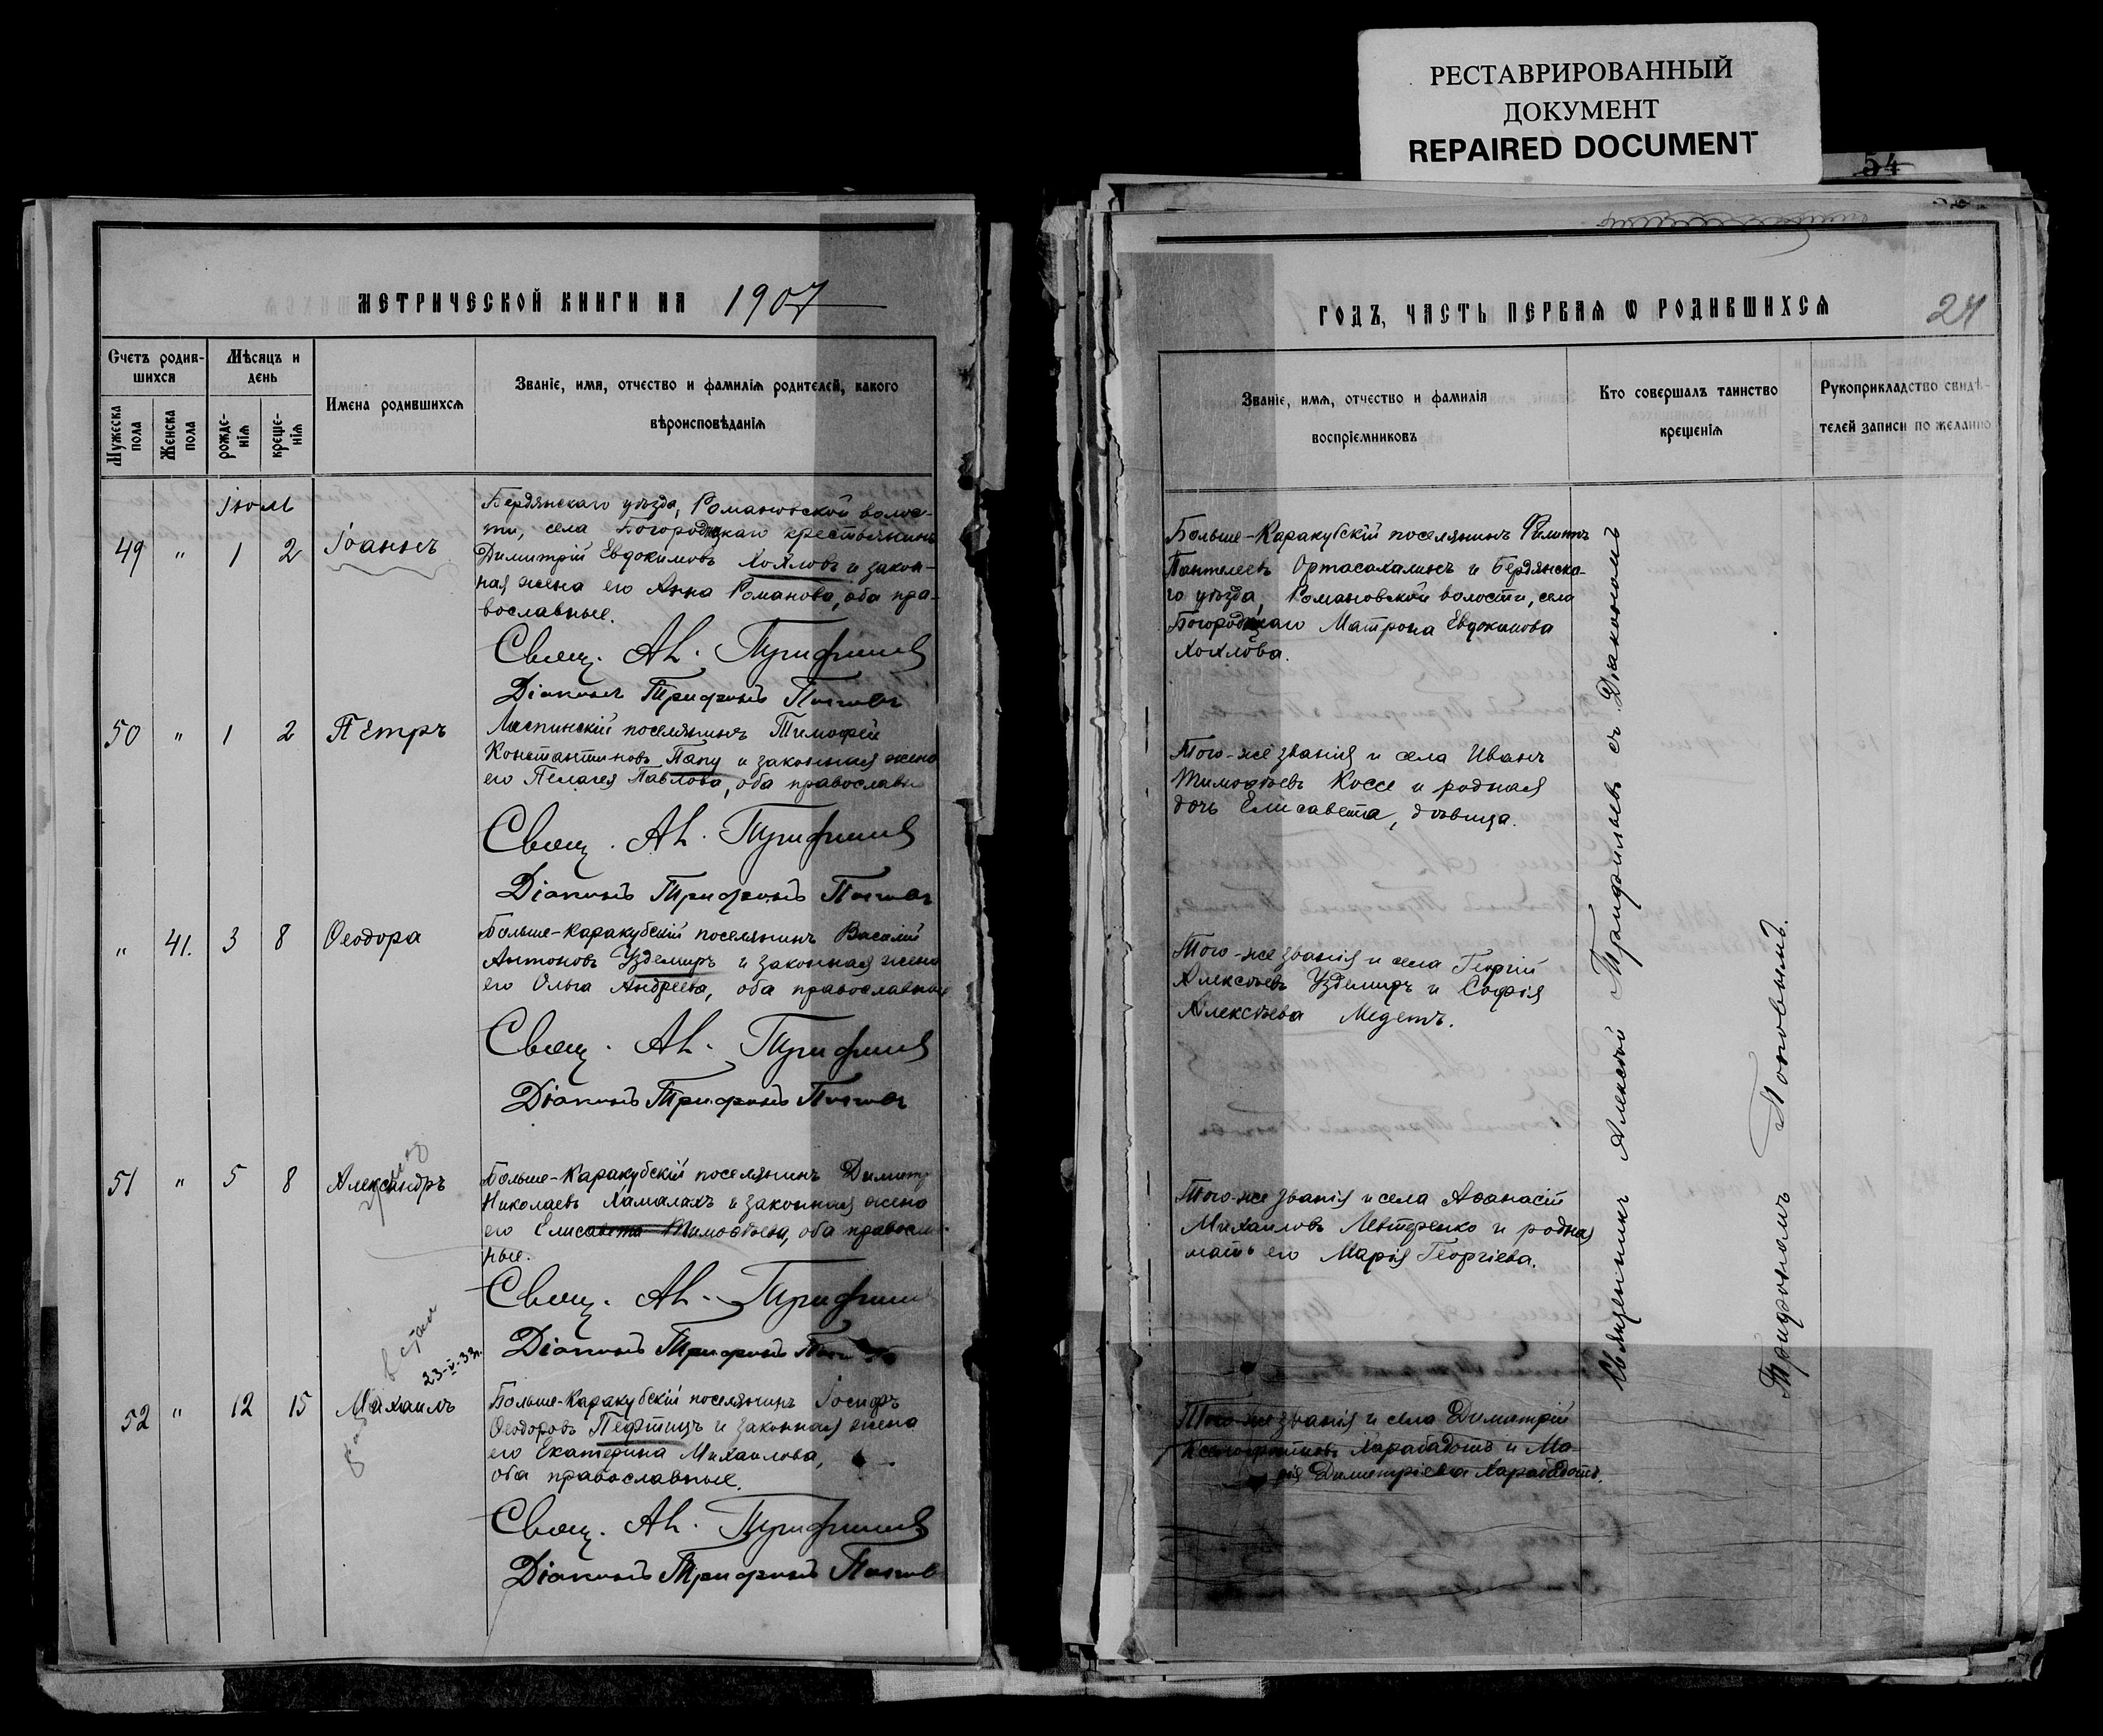 РЕСТАВРИРОВАННЫЙ
ДОКУМЕНТ
REPAIRED DOCUMENT
54
МЕТРИЧЕСКОЙ КНИГИ НА 1907
Счетъ родив-
шихся
Мѣсяцъ и
день
Мужеска пола
Женска пола
рожде-
нія
креще-
нія
Имена родившихся
Званіе, имя, отчество и фамилія родителей, какого
вѣроисповѣданія
Іюль
49 " 1 2 Іоаннъ
Бердянскаго уѣзда, Романовской волос-
ти, села Богородицкаго крестьянинъ
Димитрій Евдокимовъ Хохловъ и закон-
ная жена его Анна Романова, оба пра-
вославные.
Свящ. Ал. Трифиллiевъ
Діаконъ Трифонъ Поповъ
50 " 1 2 Петръ
Ласпинскій поселянинъ Тимофей
Константиновъ Папу и законная жена
его Пелагея Павлова, оба православны
Свящ. Ал.
Діаконъ Трифонъ Поповъ
" 41. 3 8 Ѳеодора
Больше-Каракубскій поселянинъ Василій
Антоновъ Уздемиръ и законная жена
его Ольга Андреева, оба православные
Свящ. Ал.
Діаконъ Трифонъ Поповъ
51 " 5 8 Александръ
Больше-Каракубскій поселянинъ Димитр
Николаевъ Хамалахъ и законная жена
его Елисавета Тимоѳеева, оба правосла-
ные.
Свящ. Ал.
Діаконъ Трифонъ
23-V-33г.
52 " 12 15 Михаилъ
Больше-Каракубскій поселянинъ Іосифъ
Ѳеодоровъ Пефтицъ и законная жена
его Екатерина Михаилова,
оба православные.
Свящ. Ал.
Діаконъ Трифонъ Попов
ГОДЪ, ЧАСТЬ ПЕРВАЯ Ѡ РОДИВШИХСЯ
24
Званіе, имя, отчество и фамилія
воспріемниковъ
Кто совершалъ таинство
крещенія
Рукоприкладство свидѣ-
телей записи по желанію
Больше-Каракубскій поселянинъ Филиппъ
Пантелеевъ Ортасахалинъ и Бердянска-
го уѣзда, Романовской волости, села
Богородицкаго Матрона Евдокимова
Хохлова.
Того-же званія и села Иванъ
Тимоѳеевъ Коссе и родная
дочь Елисавета, дѣвица.
Того-же званія и села Георгій
Алексѣевъ Уздемиръ и Софія
Алексѣева Медетъ.
Того-же званія и села Аѳанасій
Михаиловъ Левтеренко и родная
мать его Марія Георгіева.
Того-же званія и села Димитрій
Ксенофонтовъ Харабадотъ и Ма-
рія Димитріева Харабадотъ.
Священникъ Алексѣй съ Діакономъ
Трифономъ Поповымъ.